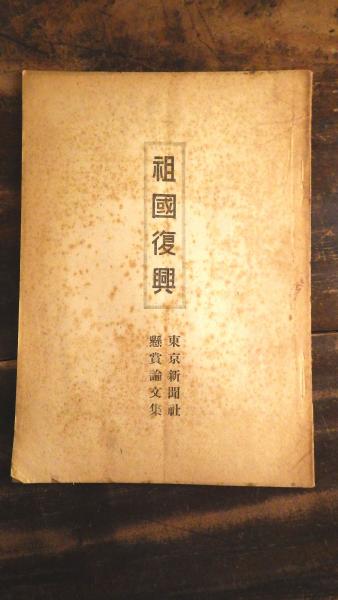 祖國復興
東京新聞社
懸賞論文集